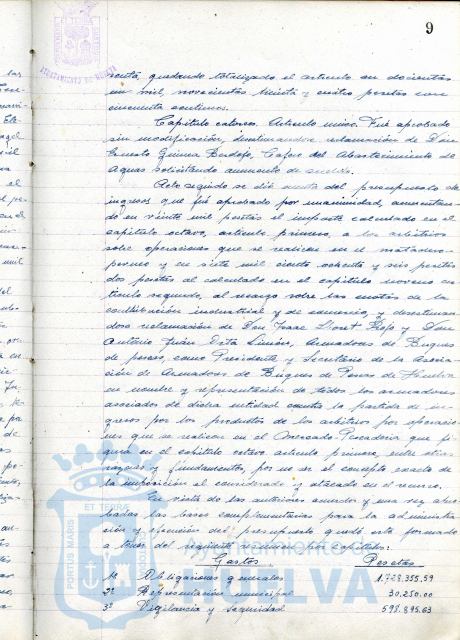 9
AYUNTAMIENTO DE HUELVA
quedando totalizado el artículo en doscientas
un mil, novecientas treinta y cuatro pesetas con
cincuenta centimos.
Capítulo catorce. Artículo único. Fué aprobado
sin modificación, desestimandose reclamación de Don
Ernesto Cajero del Abastecimiento de
Aguas solicitando aumento de sueldo.
Acto seguido se dió cuenta del presupuesto de
ingresos que fué aprobado por unanimidad, aumentan-
do en veinte mil pesetas el importe calculado en el
capítulo octavo, artículo primero, a los arbitrios
sobre operaciones que se realicen en el matadero
y en siete mil ciento ochenta y seis pesetas
dos pesetas el calculado en el capítulo noveno ar-
tículo segundo, al recargo sobre las cuotas de la
contribución industrial y de comercio, y desestiman-
dose reclamación de Don Isaac Lloret y Don
Antonio Juán Armadores de Buques
de pesca, como Presidente y Secretario de la Asocia-
ción de Armadores de Buques de Pesca de Huelva
en nombre y representación de todos los armadores
asociados de dicha entidad contra la partida de in-
gresos por los productos de los arbitrios por operacio-
nes que se realicen en el Mercado Pescaderia que fi-
gura en el capítulo octavo artículo primero, entre otras
razones y fundamentos, por no ser el concepto exacto de
la imposición el considerado y atacado en el recurso.
En vista de los anteriores acuerdos y una vez apro-
badas las bases complementarias para la administra-
ción y ejecución del presupuesto quedó este formado
a tenor del siguiente resumen por capítulos:
Gastos Pesetas
1º Obligaciones generales 1.728.355.59
2º Representación municipal 30.250.00
3º Vigilancia y seguridad 598.895.63
PORTUS MARIS ET TERRÆ
Ayuntamiento de
HUELVA